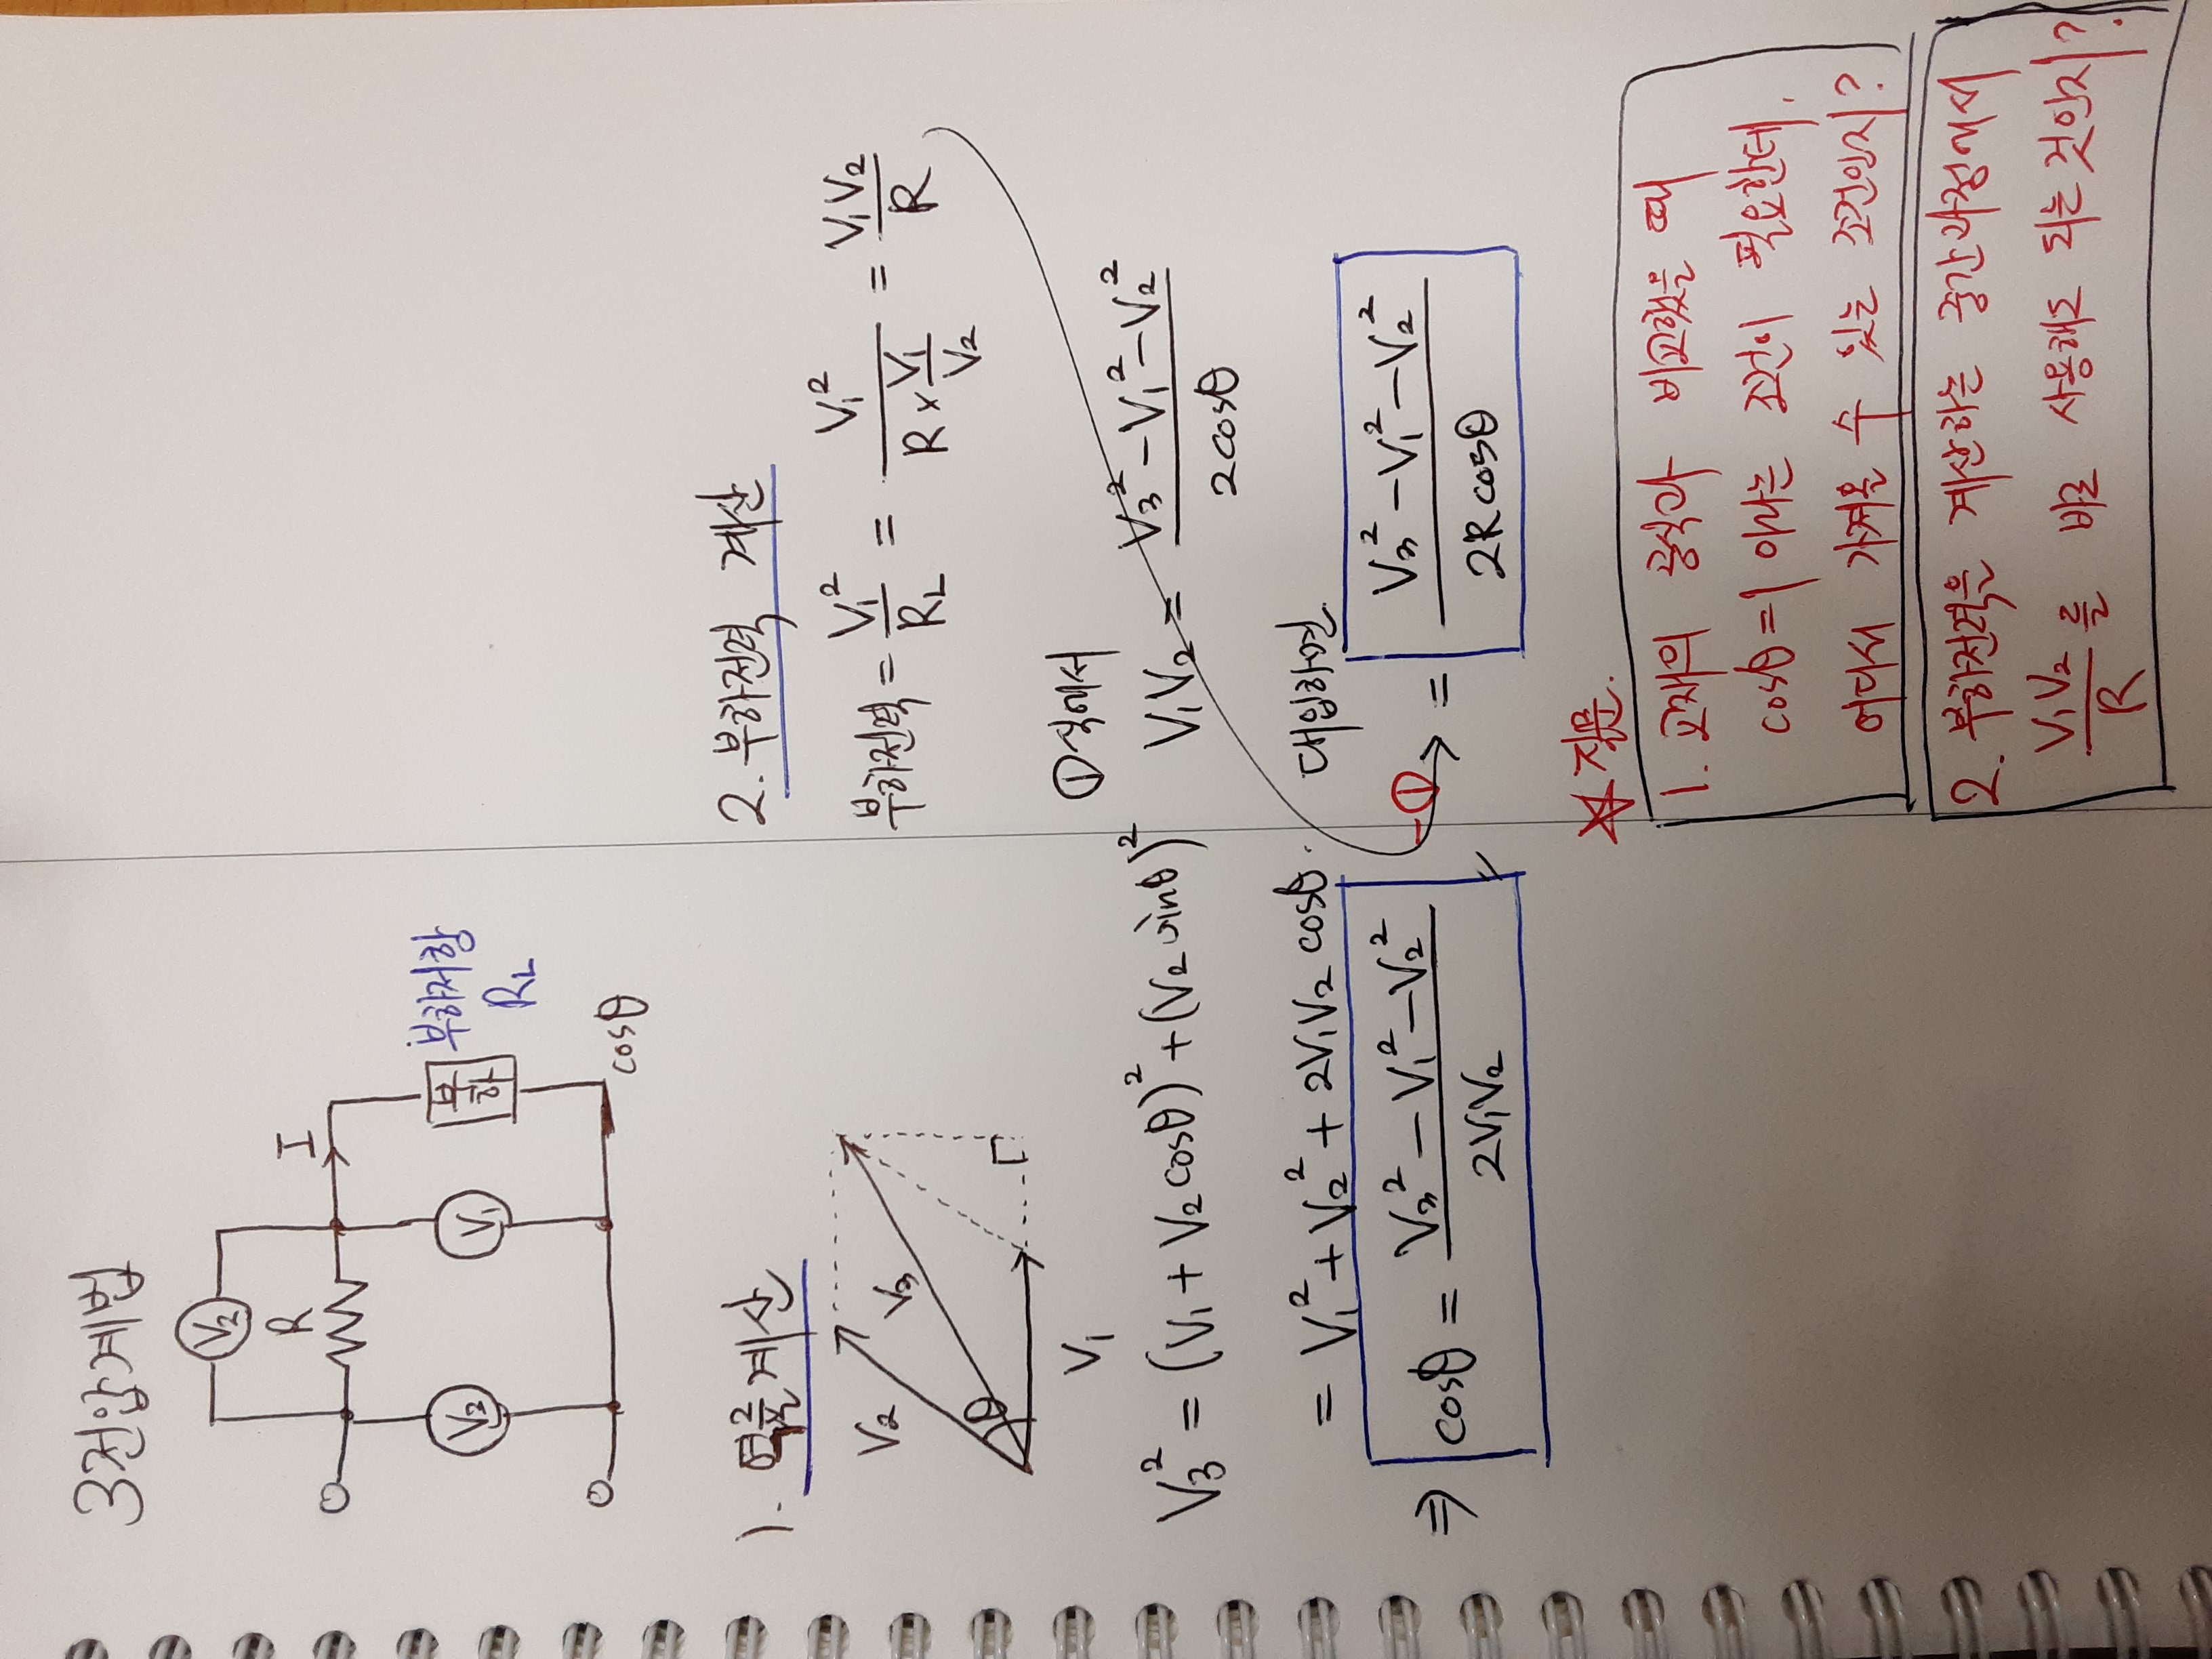 3전압계법
V₂
R
I
V₂
V₁
부하
부하저항
R_L
cosθ
1. 역률계산
V₂
V₃
θ
V₁
V₃² = (V₁ + V₂cosθ)² + (V₂sinθ)²
= V₁² + V₂² + 2V₁V₂cosθ. -①
⇒ cosθ = (V₃² - V₁² - V₂²) / 2V₁V₂
2. 부하전력 계산
부하전력 = V₁²/R_L = V₁²/(R × V₁/V₂) = V₁V₂/R
①식에서
V₁V₂ = (V₃² - V₁² - V₂²) / 2cosθ
대입하면
= (V₃² - V₁² - V₂²) / 2Rcosθ
☆질문.
1. 교재의 공식과 비교했을 때
cosθ = 1 이라는 조건이 필요한데.
어디서 가져올 수 있는 조건인지?
2. 부하전력을 계산하는 중간과정에서
V₁V₂/R 를 바로 사용해도 되는 것인지?.